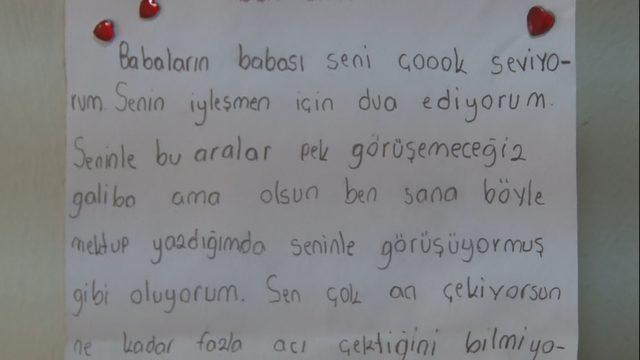 Babaların babası seni çoook seviyo-
rum. Senin iyleşmen için dua ediyorum.
Seninle bu aralar pek görüşemeceğiz
galiba ama olsun ben sana böyle
mektup yazdığımda seninle görüşüyormuş
gibi oluyorum. Sen çok acı çekiyorsun
ne kadar fazla acı çektiğini bilmiyo-